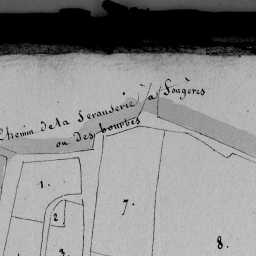 Chemin de la Seranderie à Fougères
ou des bourbes
1.
2
3.
7.
8.